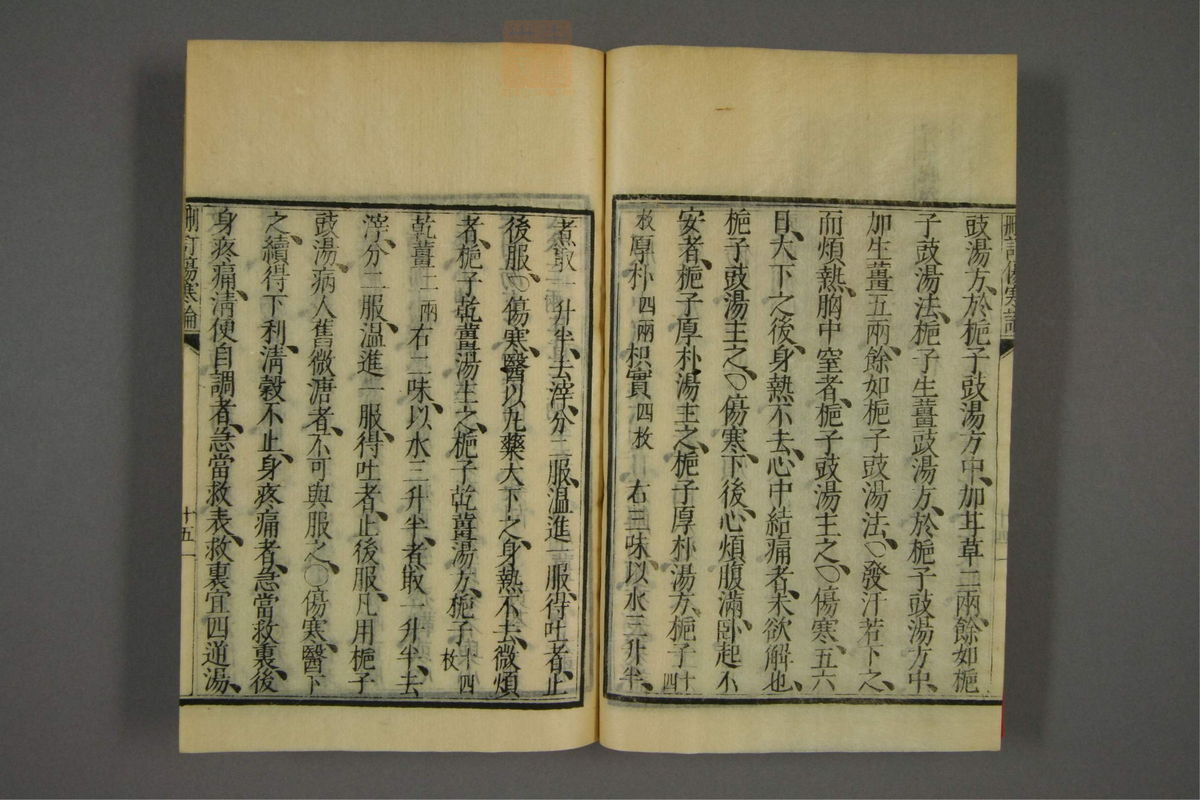 豉湯方、於梔子豉湯方中、加甘草二兩、餘如梔
子豉湯法、梔子生薑豉湯方、於梔子豉湯方中、
加生薑五兩、餘如梔子豉湯法、〇發汗若下之、
而煩熱、胸中窒者、梔子豉湯主之、〇傷寒、五六
日、大下之後、身熱不去、心中結痛者、未欲解也、
梔子豉湯主之、〇傷寒、下後、心煩腹滿、臥起不
安者、梔子厚朴湯主之、梔子厚朴湯方、梔子十四
枚厚朴四兩枳實四枚 右三味、以水三升半、
煮取一升半、去滓、分二服、溫進一服、得吐者、止
後服、〇傷寒、醫以丸藥大下之、身熱不去、微煩
者、梔子乾薑湯主之、梔子乾薑湯方、梔子十四枚
乾薑二兩 右二味、以水三升半、煮取一升半、去
滓、分二服、溫進一服、得吐者、止後服、凡用梔子
豉湯、病人舊微溏者、不可與服之、〇傷寒、醫下
之、續得下利、淸穀不止、身疼痛者、急當救裏、後
身疼痛、淸便自調者、急當救表、救裏宜四逆湯、
刪訂傷寒論
十五